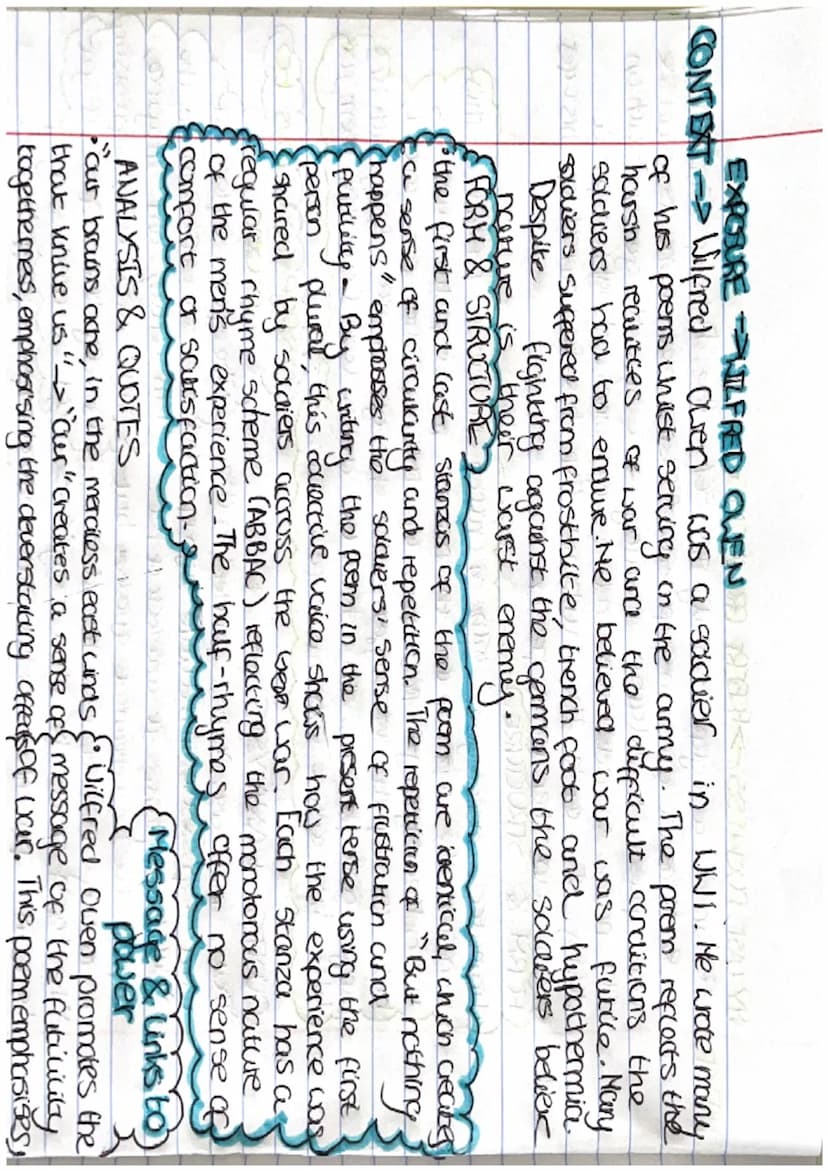 EXPOSURE → WILFRED OWEN
CONTEXT → Wilfred Owen was a soldier in WW1. He wrote many
of his poems whilst serving in the army. The poem reflects the
harsh realities of war and the difficult conditions the
soldiers had to endure. He believed war was futile. Many
soldiers suffered from frostbite, trench foot and hypothermia.
Despite fighting against the germans the soldiers believe
nature is their worst enemy.
FORM & STRUCTURE
• the first and last stanzas of the poem are identical, which creates
a sense of circularity and repetition. The repetition of "But nothing
happens" emphasises the soldiers' sense of frustration and
futility. By writing the poem in the present tense using the first
person plural, this collective voice shows how the experience was
shared by soldiers across the war. Each stanza has a
regular rhyme scheme (ABBAC) reflecting the monotonous nature
of the men's experience. The half-rhymes offer no sense of
comfort or satisfaction.
ANALYSIS & QUOTES
• "our brains ache, in the merciless east winds
that knive us" → "our" creates a sense of
togetherness, emphasising the
Message & links to
power
• Wilfred Owen promotes the
message of the futility
of war. This poem emphasises,